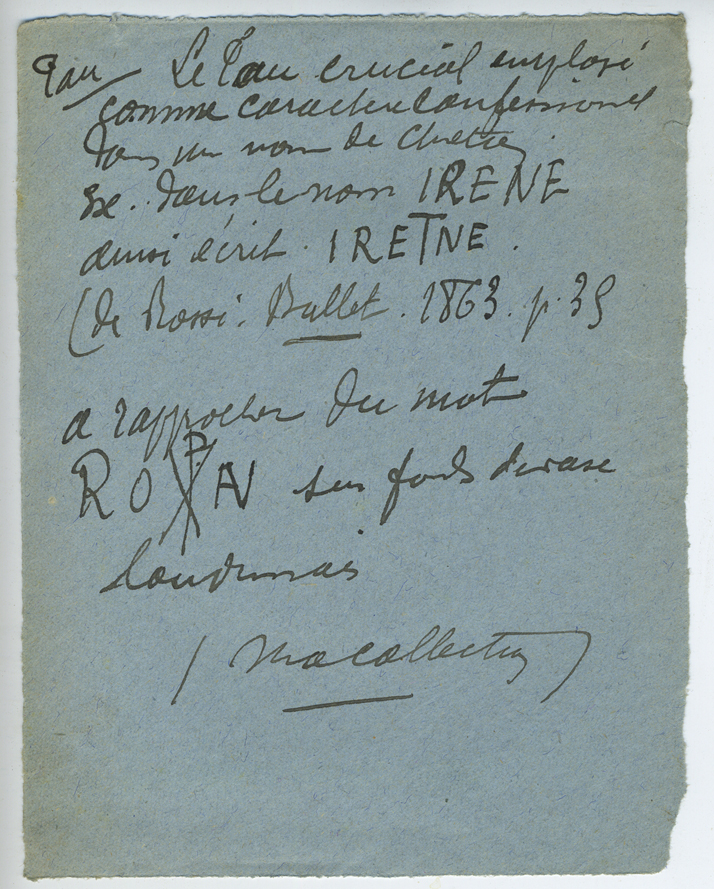 Tau Le Tau crucial employé
comme caractere confessionnel
dans un nom de Chretien
Ex. dans le nom IRENE
ainsi écrit. IRETNE.
(de Rossi. Bullet. 1863. p. 35
a rapprocher du mot
RO⳩AN sur fonds de vase
loudunais
(Ma collection)